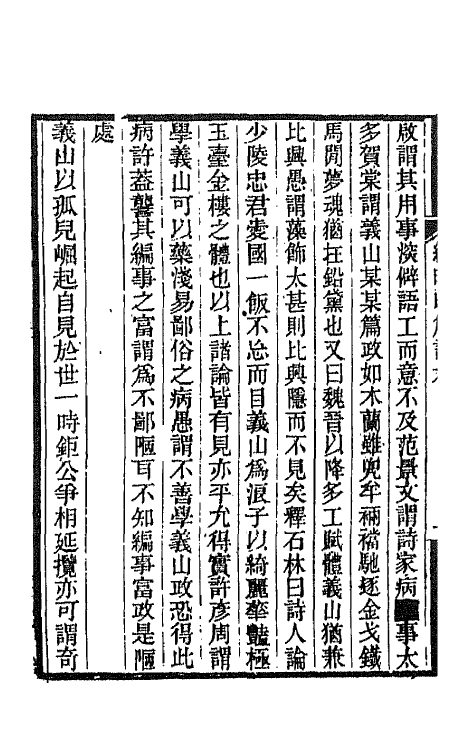 啟謂其用事淡僻語工而意不及范景文謂詩家病事太
多賀裳謂義山某某篇政如木蘭雖兜牟裲襠馳逐金戈鐵
馬閒夢魂猶在鉛黛也又曰魏晉以降多工賦體義山猶兼
比興愚謂藻飾太甚則比興隱而不見矣釋石林曰詩人論
少陵忠君愛國一飯不忘而目義山為浪子以綺麗華豔極
玉臺金樓之體也以上諸論皆有見亦平允得實許彥周謂
學義山可以藥淺易鄙俗之病愚謂不善學義山政恐得此
病許葢襲其編事之富謂為不鄙陋耳不知編事富政是陋
處
義山以孤兒崛起自見於世一時鉅公爭相延攬亦可謂奇